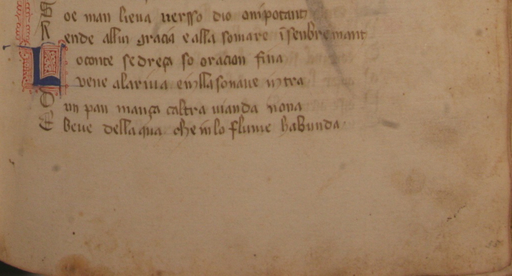 oe man lieva versso dio onipotant
R ende allui gracia e alla somare isenbremant
L o conte se dreça so oracion fina
vene ala riva en illa sonave
O un pan mança c altra vianda nona
E beve dellaqua che in lo flume habunda.